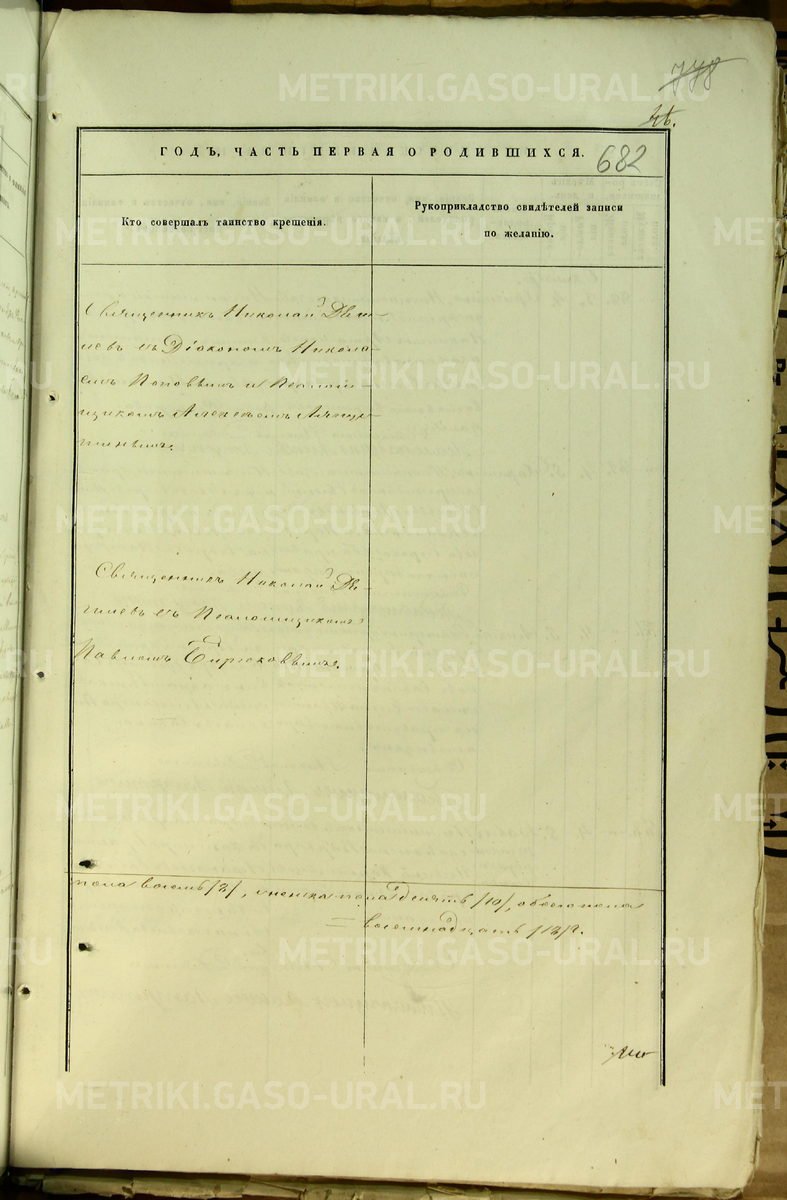 778
682
ГОДЪ, ЧАСТЬ ПЕРВАЯ О РОДИВШИХСЯ.
Кто совершалъ таинство крещенія.
Рукоприкладство свидѣтелей записи
по желанію.
Священникъ Николай
съ Діакономъ Никола-
емъ Поповымъ и Псалом-
щикомъ Алексѣемъ
Священникъ Николай
съ Псаломщикомъ
Павломъ Бирюковымъ.
пола восемь /8/, женска пола десять /10/, обоего пола
= восемнадцать /18/.
METRIKI.GASO-URAL.RU